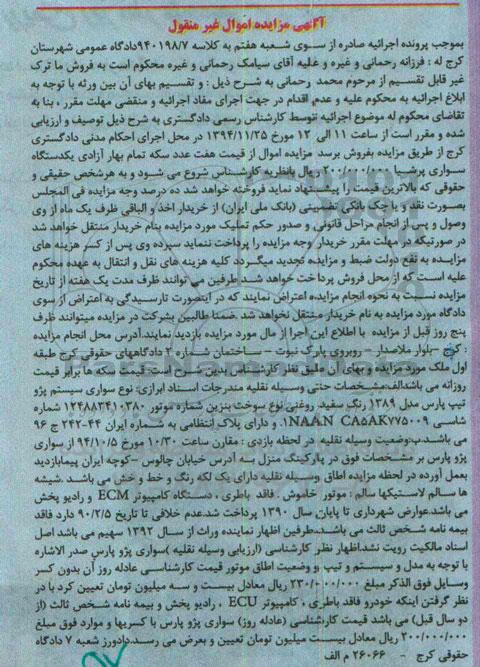 آگهی مزایده اموال غیر منقول
بموجب پرونده اجرائیه صادره از سوی شعبه هفتم به کلاسه ۹۴۰۱۹۸/۷دادگاه عمومی شهرستان
کرج له : فرزانه رحمانی و غیره و علیه آقای سیامک رحمانی و غیره محکوم است به فروش ما ترک
غیر قابل تقسیم از مرحوم محمد رحمانی به شرح ذیل : و تقسیم بهای آن بین ورثه با توجه به
ابلاغ اجرائیه به محکوم علیه و عدم اقدام در جهت اجرای مفاد اجرائیه و منقضی مهلت مقرر ، بنا به
تقاضای محکوم له موضوع اجرائیه توسط کارشناس رسمی دادگستری به شرح ذیل توصیف و ارزیابی
شده و مقرر است از ساعت ۱۱ الی ۱۲ مورخ ۱۳۹۴/۱۱/۲۵ در محل اجرای احکام مدنی دادگستری
کرج از طریق مزایده بفروش برسد مزایده اموال از قیمت هفت عدد سکه تمام بهار آزادی یکدستگاه
سواری پرشیا ۲۰۰/۰۰۰/۰۰۰ ریال بانظریه کارشناس شروع می شود و به هرشخص حقیقی و
حقوقی که بالاترین قیمت را پیشنهاد نماید فروخته خواهد شد ده درصد وجه مزایده فی المجلس
بصورت نقد و یا چک بانکی تضمینی (بانک ملی ایران) از خریدار اخذ و الباقی ظرف یک ماه از وی
وصول و پس از انجام مراحل قانونی و صدور حکم تملیک مورد مزایده بنام خریدار منتقل خواهد شد
در صورتیکه در مهلت مقرر خریدار وجه مزایده را پرداخت ننماید سپرده وی پس از کسر هزینه های
مزایده به نفع دولت ضبط و مزایده تجدید میگردد کلیه هزینه های نقل و انتقال به عهده محکوم
علیه است که از محل فروش پرداخت خواهد شد.طرفین می توانند ظرف مدت یک هفته از تاریخ
مزایده نسبت به نحوه انجام مزایده اعتراض نمایند که در اینصورت تارسیدگی به اعتراض از سوی
دادگاه مورد مزایده به نام خریدار منتقل نخواهد شد .ضمنا طالبین بشرکت در مزایده میتوانند ظرف
پنج روز قبل از مزایده با اطلاع این اجرا از مال مورد مزایده بازدید نمایند.آدرس محل انجام مزایده
: کرج -بلوار ملاصدرا - روبروی پارک نبوت - ساختمان شماره ۲ دادگاههای حقوقی کرج طبقه
اول ملک مورد مزایده و بهای آن طبق نظر کارشناس بدین شرح است:قیمت سکه ها برابر قیمت
روزانه می باشدالف:مشخصات حتی وسیله نقلیه مندرجات اسناد ابرازی: نوع سواری سیستم پژو
تیپ پارس مدل ۱۳۸۹ رنگ سفید روغنی نوع سوخت بنزین شماره موتور ۱۲۴۸۸۳۴۱۰۳۸۰ شماره
شاسی NAAN CA۵AK۷۷۵۰۰۹۱. و دارای پلاک انتظامی به شماره ایران ۴۴-۲۴۲ ج ۹۶
می باشد.ب:وضعیت وسیله نقلیه در لحظه بازدی : مقارن ساعت ۱۰/۳۰ مورخ ۹۴/۱۰/۵ از سواری
پژو پارس بر مشخصات فوق در پارکینگ منزل به آدرس خیابان چالوس -کوچه ایران پیمابازدید
بعمل آورده در لحظه مزایده اطاق وسیله نقلیه دارای یک لکه رنگ و خط و خش می باشد. شیشه
ها سالم لاستیکها سالم : موتور خاموش . فاقد باطری ، دستگاه کامپیوتر ECM و رادیو پخش
می باشد.عوارض شهرداری تا پایان سال ۱۳۹۰ پرداخت شد.عدم خلافی تا تاریخ ۹۰/۲/۵ دارد فاقد
بیمه نامه شخص ثالث می باشد.طرفین اظهار نماینده وراث از سال ۱۳۹۲ سهیم می باشد اصل
اسناد مالکیت رویت نشداظهار نظر کارشناسی (ارزیابی وسیله نقلیه )سواری پژو پارس صدر الاشاره
با توجه به مدل و سیستم و تیپ و وضعیت اطاق موتور قیمت کارشناسی عادله روز آن بدون کسر
وسایل فوق الذکر مبلغ ۲۳۰/۰۰۰/۰۰۰ ریال معادل بیست و سه میلیون تومان تعیین کرد با در
نظر گرفتن اینکه خودرو فاقد باطری ، کامپیوتر ECU ، رادیو پخش و بیمه نامه شخص ثالث (از
دو سال قبل) می باشد قیمت کارشناسی (عادله روز) سواری پژو پارس با کسریها و موارد فوق مبلغ
۲۰۰/۰۰۰/۰۰۰ ریال معادل بیست میلیون تومان تعیین و بعرض می رسد.دادورز شعبه ۷ دادگاه
حقوقی کرج - ۲۶۰۶۶ م الف